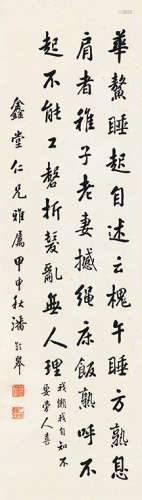 華鰲睡起自述云槐午睡方熟息
肩者稚子老妻撼繩床飯熟呼不
起不能工磬折鬢亂無人理
我懶我自知不
要旁人喜
鑫堂仁兄雅屬甲申秋潘齡皋